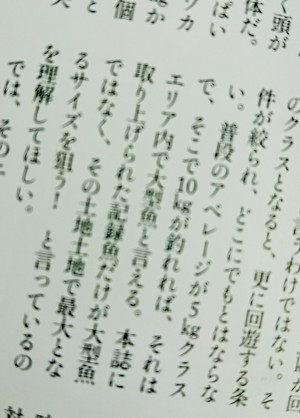 のクラスとなると、更に回遊する条
件が絞られ、どこにでもとはならな
い。普段のアベレージが5kgクラス
で、そこで10kgが釣れれば、それは
エリア内で大型魚と言える。本誌に
取り上げられた記録魚だけが大型魚
ではなく、その土地土地で最大とな
るサイズを狙う!　と言っているの
を理解してほしい。
では、その
く頭が
体だ。
ぱい
ツカ
kgか
個
と